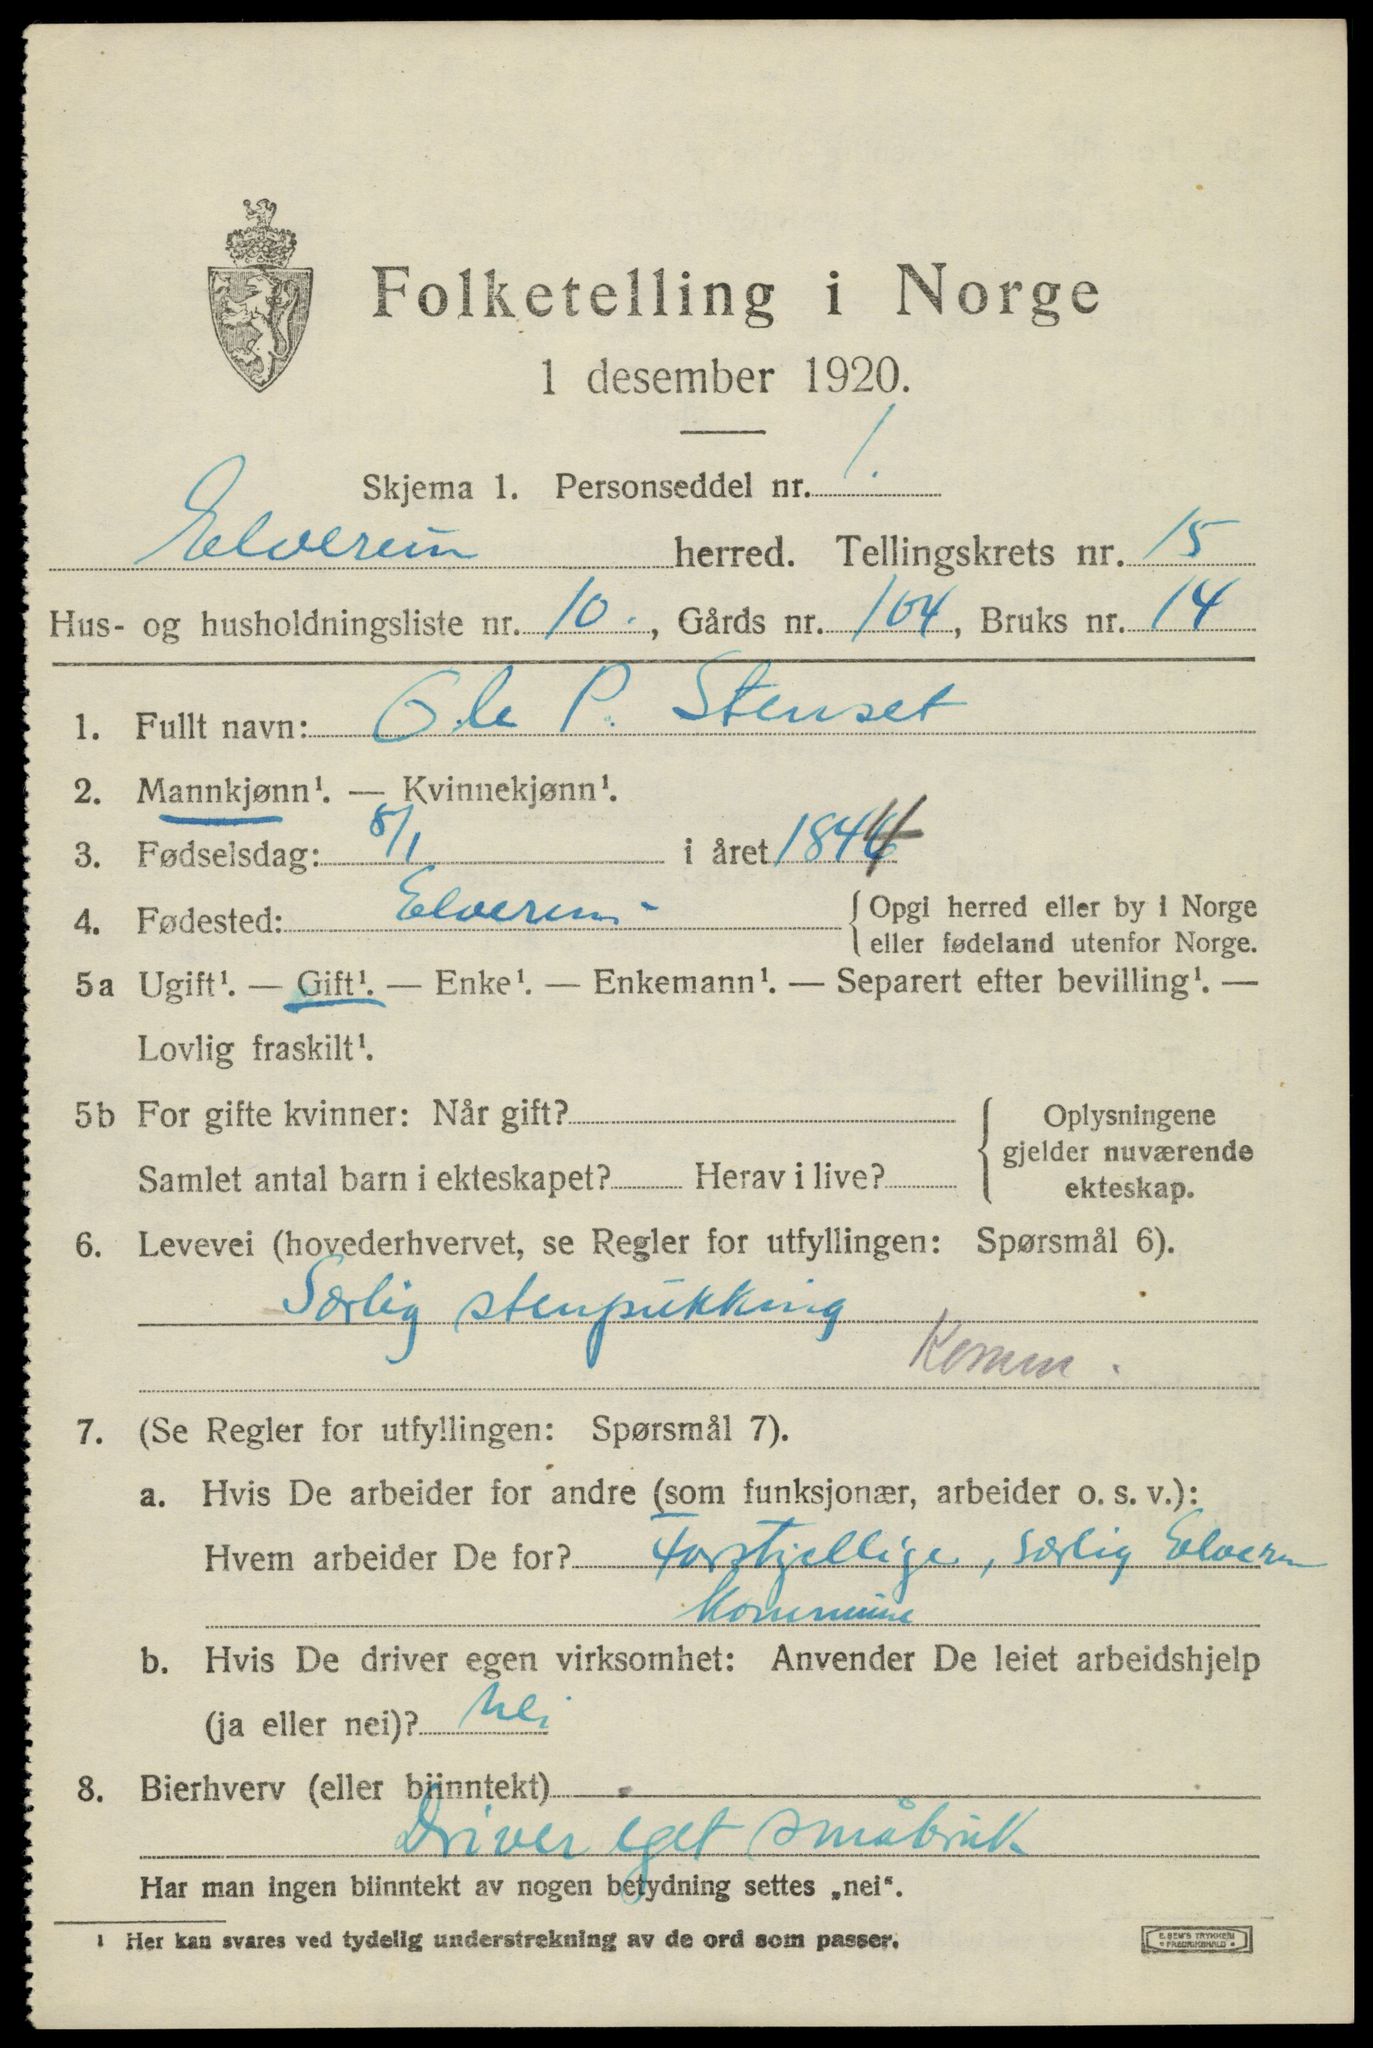 Folketelling i Norge
1 desember 1920.
Skjema 1. Personseddel nr. 1.
Elverum herred. Tellingskrets nr. 15
Hus- og husholdningsliste nr. 10., Gårds nr. 104, Bruks nr. 14
1. Fullt navn: Ole P. Stenset
2. Mannkjønn¹. — Kvinnekjønn¹.
3. Fødselsdag: 8/1 i året 1844
4. Fødested: Elverum - {Opgi herred eller by i Norge
eller fødeland utenfor Norge.
5a Ugift¹. — Gift¹. — Enke¹. — Enkemann¹. — Separert efter bevilling¹. —
Lovlig fraskilt¹.
5b For gifte kvinner: Når gift? { Oplysningene
gjelder nuværende
Samlet antal barn i ekteskapet? Herav i live? ekteskap.
6. Levevei (hovederhvervet, se Regler for utfyllingen: Spørsmål 6).
Særlig stenpukking
Komm.
7. (Se Regler for utfyllingen: Spørsmål 7).
a. Hvis De arbeider for andre (som funksjonær, arbeider o. s. v.):
Hvem arbeider De for? Forskjellige, særlig Elverum
Kommune
b. Hvis De driver egen virksomhet: Anvender De leiet arbeidshjelp
(ja eller nei)? Nei
8. Bierhverv (eller biinntekt)
Driver eget småbruk
Har man ingen biinntekt av nogen betydning settes „nei“.
¹ Her kan svares ved tydelig understrekning av de ord som passer.
E. SEM'S TRYKKERI
• FREDRIKSHALD •